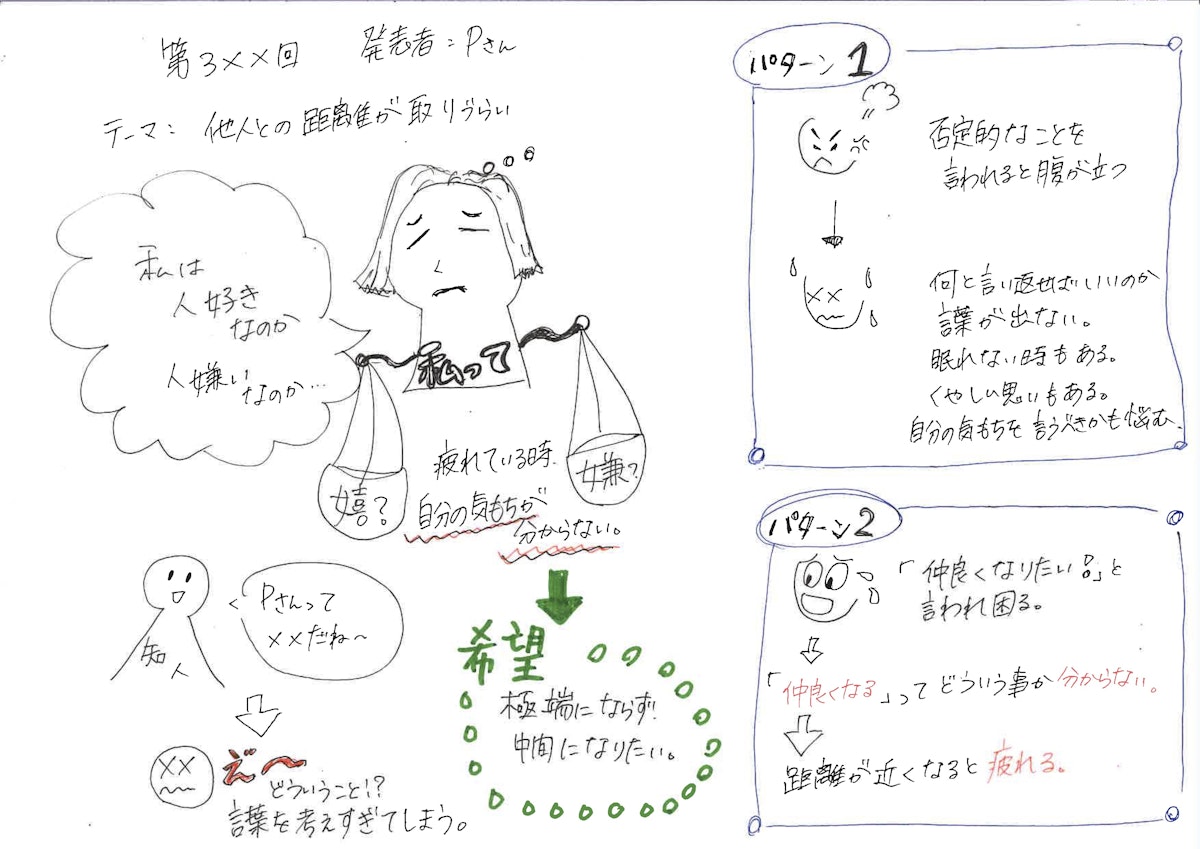 第3××回 発表者：Pさん
テーマ： 他人との距離が取りづらい
私は
人好き
なのか
人嫌い
なのか…
私って
嬉？
嫌？
疲れている時、
自分の気もちが
分からない。
知人
Pさんって
××だね〜
え〜
どういうこと!?
言葉を考えすぎてしまう。
希望
極端にならず
中間になりたい。
パターン1
否定的なことを
言われると腹が立つ
何と言い返せばいいのか
言葉が出ない。
眠れない時もある。
くやしい思いもある。
自分の気もちを言うべきかも悩む、
パターン2
「仲良くなりたい！」と
言われ困る。
「仲良くなる」ってどういう事か分からない。
距離が近くなると疲れる。